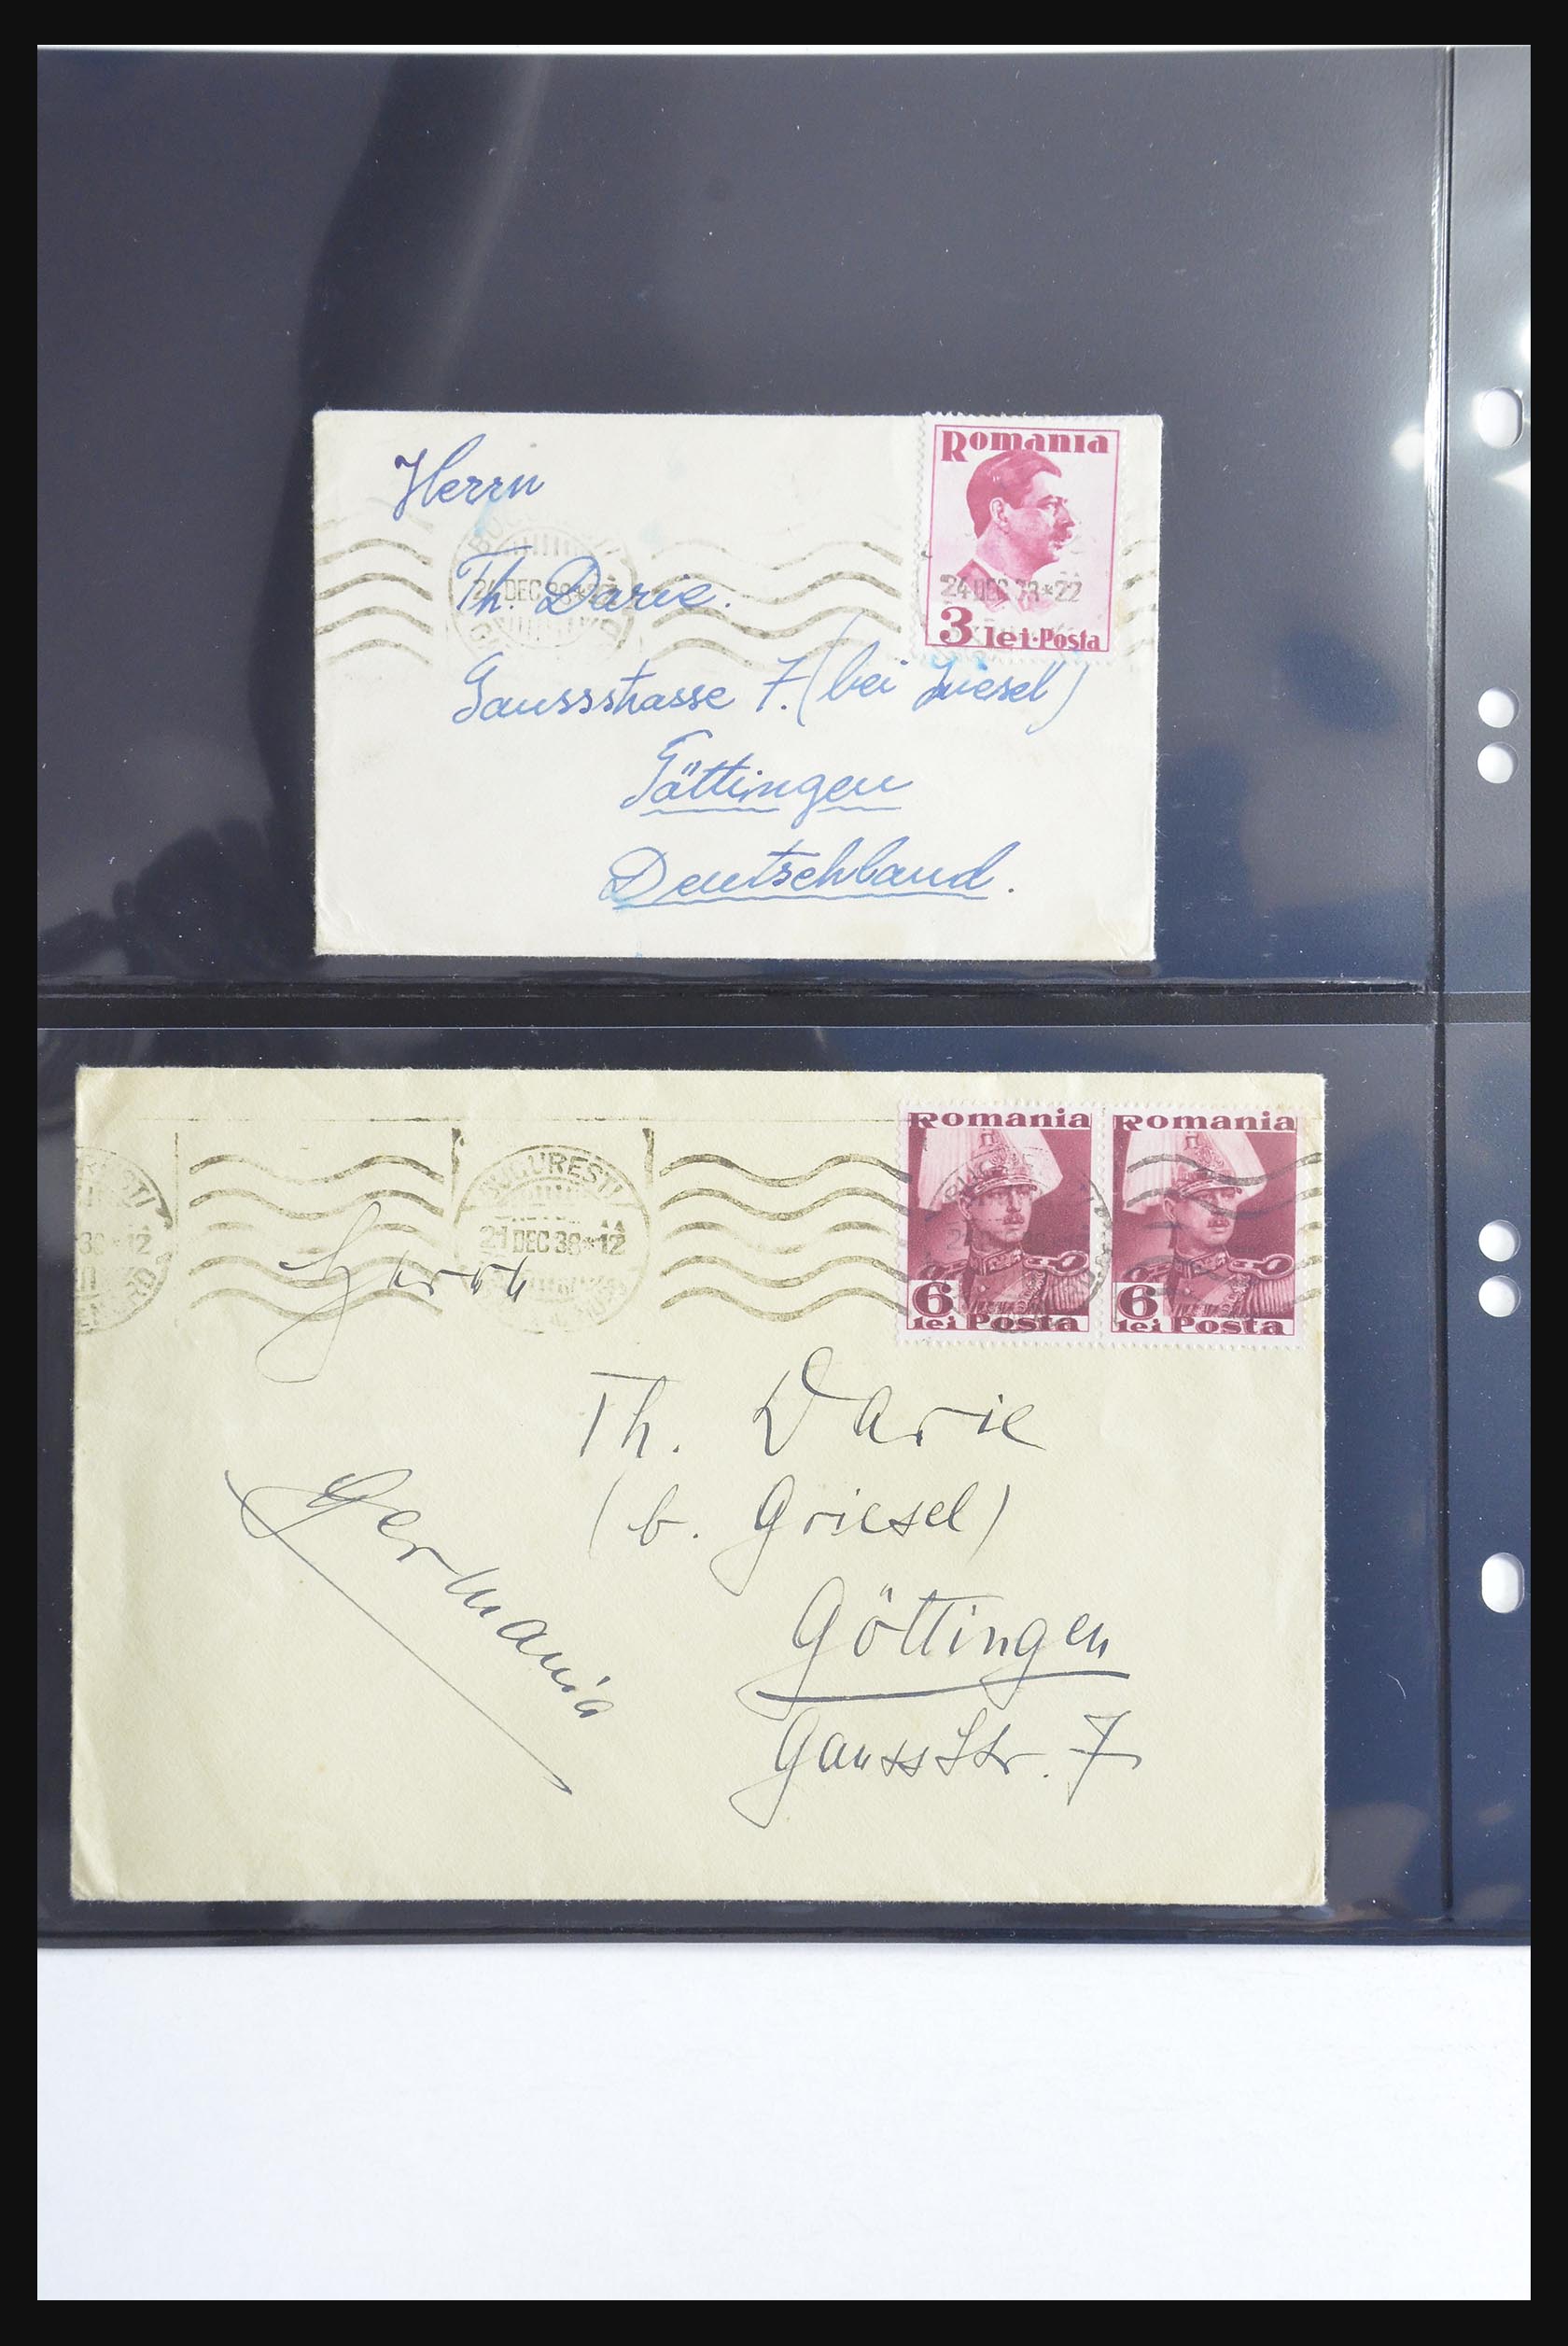 Herrn
Romania
24 DEC 38*22
Th. Darie.
24 DEC 38*22
3 lei·Posta
Gaussstrasse 7. (bei Griesel)
Göttingen
Deutschland.
Romania Romania
BUCUREȘTI
21 DEC 38*12
6 lei Posta 6 lei Posta
Herrn
Th. Darie
(b. Griesel)
Germania
Göttingen
Gaussstr. 7